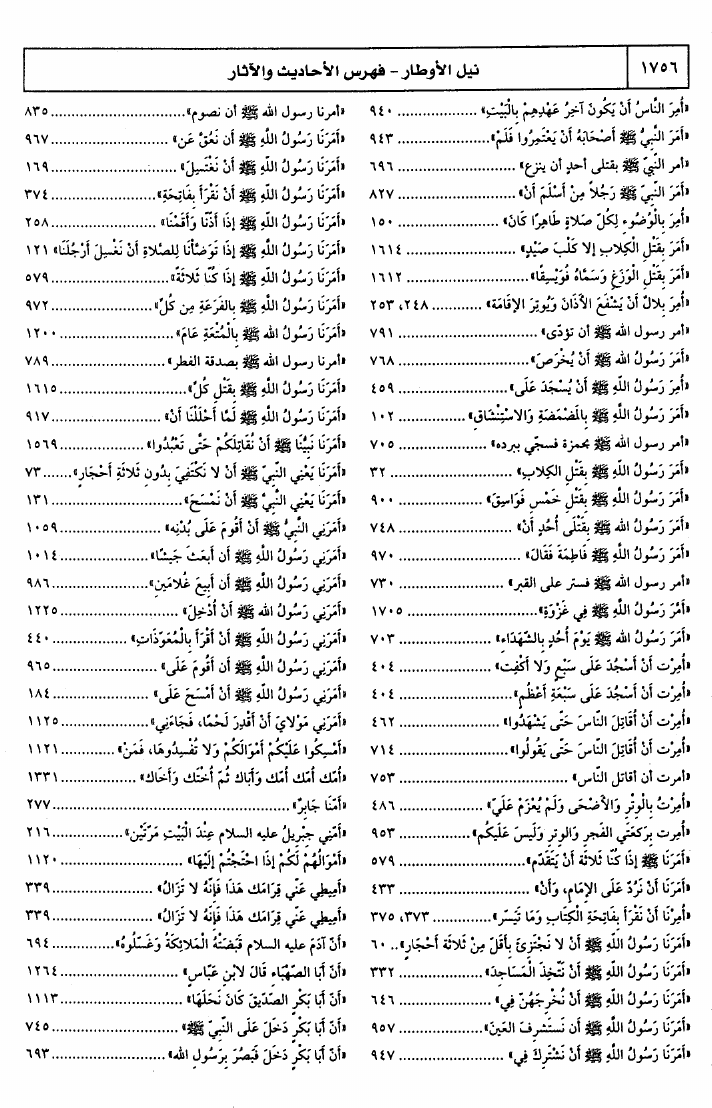 ١٧٥٦
نيل الأوطار - فهرس الأحاديث والآثار
«أُمِرَ النَّاسُ أَنْ يَكُونَ آخِرُ عَهْدِهِمْ بِالْبَيْتِ» .................. ٩٤٠
«أَمَرَ النَّبِيُّ ﷺ أَصْحَابَهُ أَنْ يَعْتَمِرُوا فَلَمْ».................. ٩٤٣
«أمر النَّبِيّ ﷺ بقتلى أحدٍ أن ينزع» .................. ٦٩٦
«أَمَرَ النَّبِيّ ﷺ رَجُلاً مِنْ أَسْلَمَ أَنْ» .................. ٨٢٧
«أُمِرَ بِالْوُضُوءِ لِكُلِّ صَلاةٍ طَاهِرًا كَانَ».................. ١٥٠
«أَمَرَ بِقَتْلِ الْكِلابِ إلا كَلْبَ صَيْدٍ» .................. ١٦١٤
«أَمَرَ بِقَتْلِ الْوَزَغِ وَسَمَّاهُ فُوَيْسِقًا».................. ١٦١٢
«أُمِرَ بِلالٌ أَنْ يَشْفَعَ الأَذَانَ وَيُوتِرَ الإِقَامَةَ» .......... ٢٤٨، ٢٥٣
«أمر رسول الله ﷺ أن تؤدى» .................. ٧٩١
«أَمَرَ رَسُولُ اللَّهِ ﷺ أَنْ يُخْرَصَ» .................. ٧٦٨
«أَمِرَ رَسُولُ اللَّهِ ﷺ أَنْ يُسْجَدَ عَلَى».................. ٤٥٩
«أَمَرَ رَسُولُ اللَّهِ ﷺ بِالْمَضْمَضَةِ وَالاسْتِنْشَاقِ» .................. ١٠٢
«أمر رسول الله ﷺ بحمزة فسجّي ببرده» .................. ٧٠٥
«أَمَرَ رَسُولُ اللَّهِ ﷺ بِقَتْلِ الْكِلابِ» .................. ٣٢
«أَمَرَ رَسُولُ اللَّهِ ﷺ بِقَتْلِ خَمْسِ فَوَاسِقَ» .................. ٩٠٠
«أَمَرَ رَسُولُ الله ﷺ بِقَتْلَى أُحُدٍ أَنْ» .................. ٧٤٨
«أَمَرَ رَسُولُ اللَّهِ ﷺ فَاطِمَةَ فَقَالَ» .................. ٩٧٠
«أمر رسول الله ﷺ فستر على القبر» .................. ٧٣٠
«أَمَّرَ رَسُولُ اللَّهِ ﷺ فِي غَزْوَةٍ» .................. ١٧٠٥
«أَمَرَ رَسُولُ الله ﷺ يَوْمَ أُحُدٍ بِالشّهَدَاءِ» .................. ٧٠٣
«أُمِرْت أَنْ أَسْجُدَ عَلَى سَبْعٍ وَلا أَكْفِت» .................. ٤٠٤
«أُمِرْت أَنْ أَسْجُدَ عَلَى سَبْعَةِ أَعْظُمٍ».................. ٤٠٤
«أُمِرْتُ أَنْ أُقَاتِلَ النَّاسَ حَتَّى يَشْهَدُوا» .................. ٤٦٢
«أُمِرْتُ أَنْ أُقَاتِلَ النَّاسَ حَتَّى يَقُولُوا».................. ٧١٤
«أمرت أن أقاتل النّاس» .................. ٧٥٣
«أُمِرْتُ بِالْوِتْرِ وَالأَضْحَى وَلَمْ يُعْزَمْ عَلَيَّ» .................. ٤٨٦
«أُمِرت بِرَكعَتي الفجر والوتر وَلَيسَ عَلَيكُم».................. ٩٥٣
«أَمَرَنَا ﷺ إذَا كُنَّا ثَلاثَةً أَنْ يَتَقَدَّم».................. ٥٧٩
«أَمَرَنَا أَنْ نَرُدَّ عَلَى الإِمَامِ، وَأَنْ» .................. ٤٣٣
«أُمِرْنَا أَنْ نَقْرَأَ بِفَاتِحَةِ الْكِتَابِ وَمَا تَيَسَّرَ» .......... ٣٧٣، ٣٧٥
«أَمَرَنَا رَسُولُ اللَّهِ ﷺ أَنْ لا نَجْتَزِئَ بِأَقَلَّ مِنْ ثَلاثَةِ أَحْجَارٍ».. ٦٠
«أَمَرَنَا رَسُولُ اللَّهِ ﷺ أَنْ نَتَّخِذَ الْمَسَاجِدَ».................. ٣٣٢
«أَمَرَنَا رَسُولُ اللَّهِ ﷺ أَنْ نُخْرِجَهُنَّ فِي» .................. ٦٤٦
«أَمَرَنَا رَسُولُ اللَّهِ ﷺ أن نَستَشرِفَ العَينَ».................. ٩٥٧
«أَمَرَنَا رَسُولُ اللَّهِ ﷺ أَنْ نَشْتَرِكَ فِي» .................. ٩٤٧
«أمرنا رسول الله ﷺ أن نصوم».................. ٨٣٥
«أَمَرَنَا رَسُولُ اللَّهِ ﷺ أن نَعُقَّ عَن».................. ٩٦٧
«أَمَرَنَا رَسُولُ اللَّهِ ﷺ أَنْ نَغْتَسِلَ».................. ١٦٩
«أَمَرَنَا رَسُولُ اللَّهِ ﷺ أَنْ نَقْرَأَ بِفَاتِحَةِ».................. ٣٧٤
«أَمَرَنَا رَسُولُ اللَّهِ ﷺ إذَا أَذَّنَّا وَأَقَمْنَا».................. ٢٥٨
«أَمَرَنَا رَسُولُ اللَّهِ ﷺ إذَا تَوَضَّأْنَا لِلصَّلاةِ أَنْ نَغْسِلَ أَرْجُلَنَا» ١٢١
«أَمَرَنَا رَسُولُ اللَّهِ ﷺ إذَا كُنَّا ثَلاثَةً».................. ٥٧٩
«أَمَرَنَا رَسُولُ اللَّهِ ﷺ بِالفَرَعَةِ مِن كُلِّ».................. ٩٧٢
«أَمَرَنَا رَسُولُ الله ﷺ بِالْمُتْعَةِ عَامَ».................. ١٢٠٠
«أمرنا رسول الله ﷺ بصدقة الفطر» .................. ٧٨٩
«أَمَرَنَا رَسُولُ اللَّهِ ﷺ بِقَتْلِ كُلِّ».................. ١٦١٥
«أَمَرَنَا رَسُولُ اللَّهِ ﷺ لَمَّا أَحْلَلْنَا أَنْ».................. ٩١٧
«أَمَرَنَا نَبِيُّنَا ﷺ أَنْ نُقَاتِلَكُمْ حَتَّى تَعْبُدُوا» .................. ١٥٦٩
«أَمَرَنَا يَعْنِي النَّبِيَّ ﷺ أَنْ لا نَكْتَفِيَ بِدُونِ ثَلاثَةِ أَحْجَارٍ»...... ٧٣
«أَمَرَنَا يَعْنِي النَّبِيَّ ﷺ أَنْ نَمْسَحَ».................. ١٣١
«أَمَرَنِي النَّبِيُّ ﷺ أَنْ أَقُومَ عَلَى بُدْنِه» .................. ١٠٥٩
«أَمَرَنِي رَسُولُ اللَّهِ ﷺ أن أبعَثَ جَيشًا».................. ١٠١٤
«أَمَرَنِي رَسُولُ اللَّهِ ﷺ أن أَبِيعَ غُلامَينِ».................. ٩٨٦
«أَمَرَنِي رَسُولُ الله ﷺ أَنْ أُدْخِلَ» .................. ١٢٢٥
«أَمَرَنِي رَسُولُ اللَّهِ ﷺ أَنْ أَقْرَأَ بِالْمُعَوِّذَاتِ».................. ٤٤٠
«أَمَرَنِي رَسُولُ اللَّهِ ﷺ أن أَقُومَ عَلَى» .................. ٩٦٥
«أَمَرَنِي رَسُولُ اللَّهِ ﷺ أَنْ أَمْسَحَ عَلَى».................. ١٨٤
«أَمَرَنِي مَوْلايَ أَنْ أَقْدِرَ لَحْمًا، فَجَاءَنِي» .................. ١١٢٥
«أَمْسِكُوا عَلَيْكُمْ أَمْوَالَكُمْ وَلا تُفْسِدُوهَا، فَمَنْ» .................. ١١٢١
«أُمُّك أُمُّك أُمَّك وَأَبَاك ثُمَّ أُخْتَك وَأَخَاك».................. ١٣٣١
«أَمَّنَا جَابِرٌ».................. ٢٧٧
«أَمَّنِي جِبْرِيلُ عليه السلام عِنْدَ الْبَيْتِ مَرَّتَيْنِ».................. ٢١٦
«أَمْوَالُهُمْ لَكُمْ إذَا احْتَجْتُمْ إلَيْهَا» .................. ١١٢٠
«أَمِيطِي عَنِّي قِرَامَك هَذَا فَإِنَّهُ لا تَزَالُ».................. ٣٣٩
«أَمِيطِي عَنِّي قِرَامَك هَذَا فَإِنَّهُ لا تَزَالُ».................. ٣٣٩
«أَنَّ آدَمَ عليه السلام قَبَضَتْهُ الْمَلائِكَةُ وَغَسَّلُوهُ»............ ٦٩٤
«أَنَّ أَبَا الصَّهْبَاءِ قَالَ لابْنِ عَبَّاسٍ» .................. ١٢٦٤
«أَنَّ أَبَا بَكْرٍ الصِّدِّيقَ كَانَ نَحَلَهَا» .................. ١١١٣
«أَنَّ أَبَا بَكْرٍ دَخَلَ عَلَى النَّبِيِّ ﷺ» .................. ٧٤٥
«أَنَّ أَبَا بَكْرٍ دَخَلَ فَبَصُرَ بِرَسُولِ الله» .................. ٦٩٣